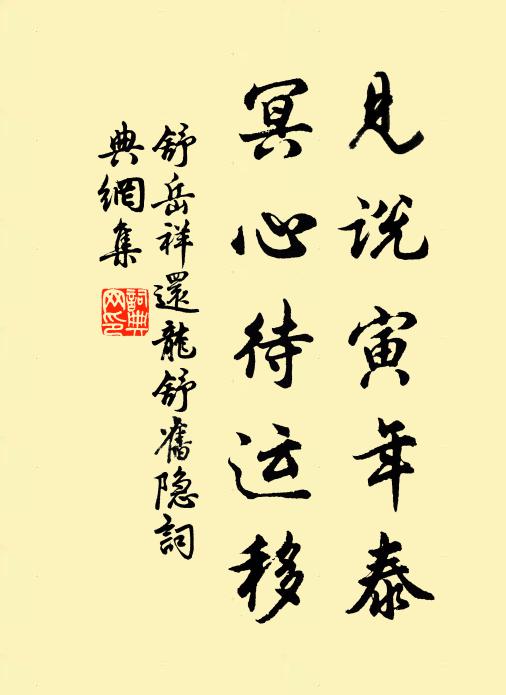 見説寅年泰
冥心待运移
舒岳祥還龍舒舊隐詞
典網集
詞典
网印